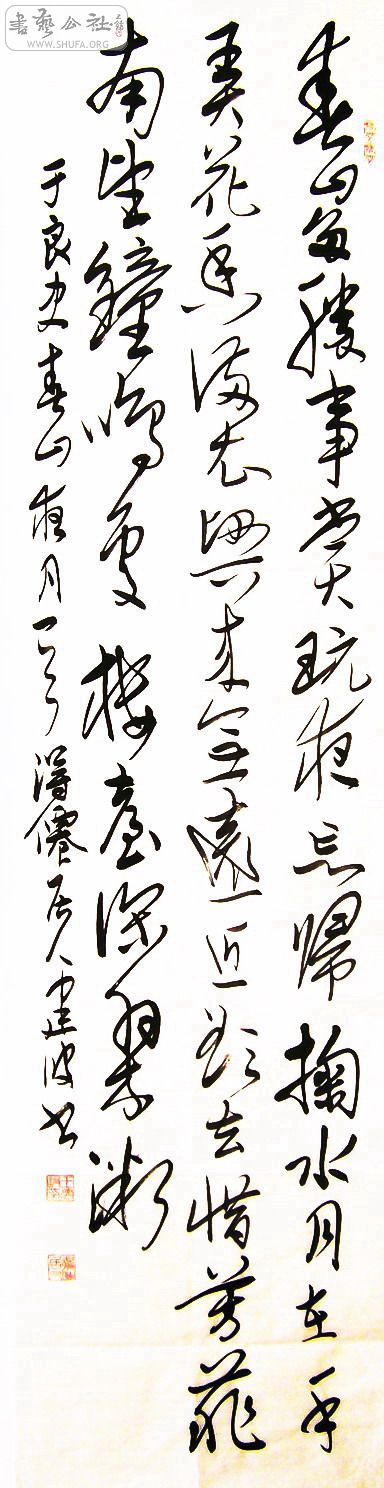 書藝公社
WWW.SHUFA.ORG
春山多勝事賞玩夜忘歸掬水月在手
弄花香滿衣興來無遠近欲去惜芳菲
南望鐘鳴處樓臺深翠微
于良史春山夜月一首 得僊居人建波書